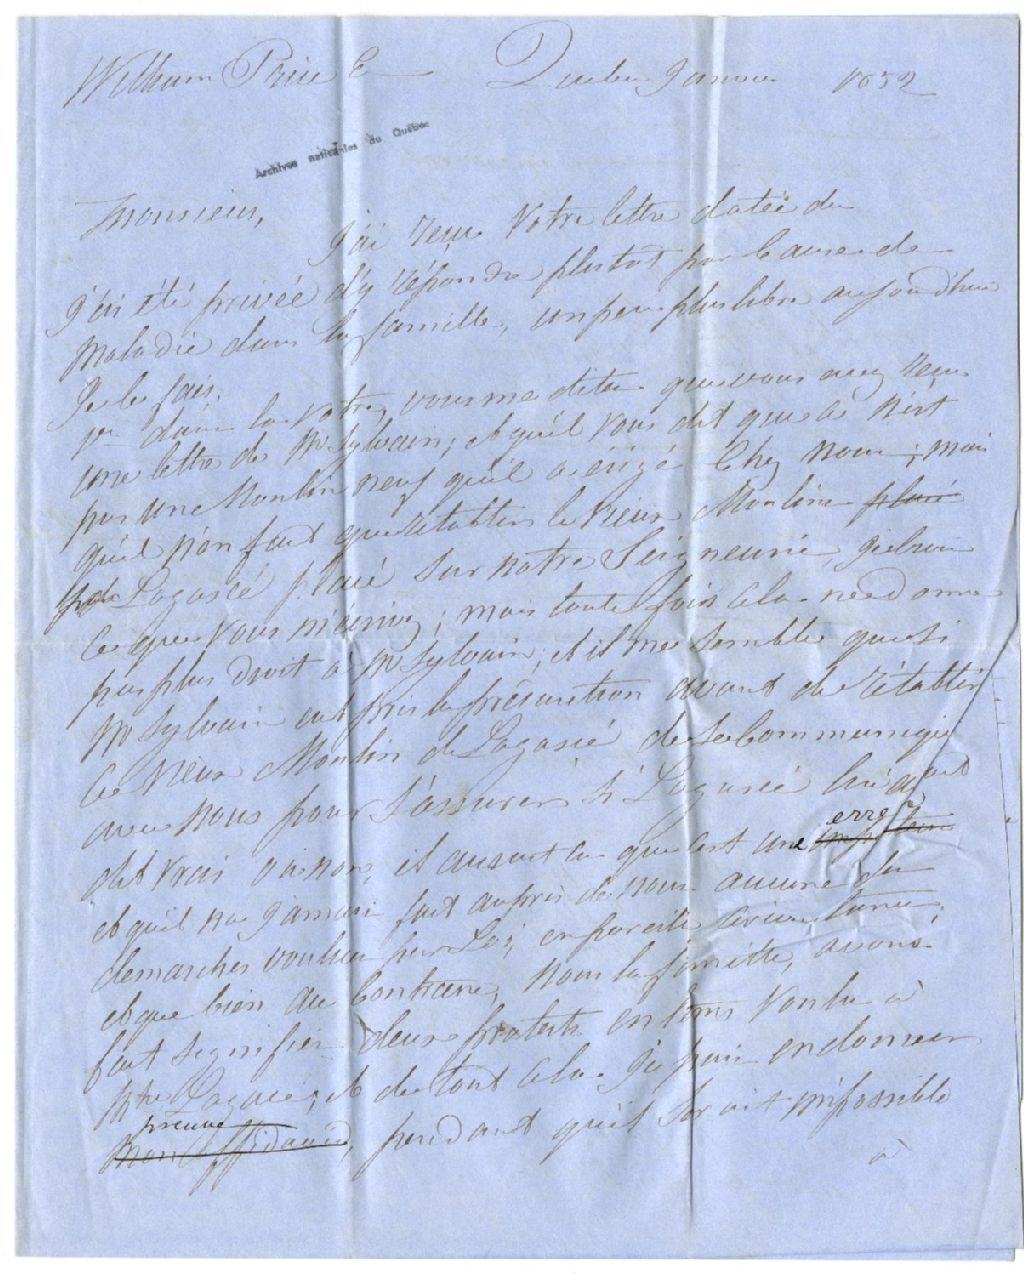 William Price E Quebec Janvier 1852
Archives nationales du Québec
Monsieur,
J'ai reçu Votre lettre datée du
J'ai été privée d'y répondre plutot par Cause de
Maladie dans la famille, un peu plus libre aujourd'hui
Je le fais.
dans la votre, vous me dites que vous avez reçu
une lettre de Mr Sylvain, et qu'il vous dit que ce n'est
pas une Moulin neuf qu'il a érigé Chez nous, mais
qu'il n'on fait que rétablir le Vieux Moulin placé
de Lagacé placé sur notre Seigneurie, je crois
ce que vous m'écrivez; mais toute fois cela ne donne
pas plus droit à Mr Sylvain, et il me semble que si
Mr Sylvain eut pris la précaution avant de rétablir
le vieux Moulin de Lagacé de se Communiquer
avec nous pour s'assurer si Lagacé lui avait
dit vrai ou non, il aurait vu que c'est une erreur
et qu'il n'a jamais fait auprès de nous aucune des
demarches voulues par Loi, en pareille circonstance,
et que bien au Contraire, nous la famille, avons
fait signifier deux protets en tems voulu à
Mr Lagacé, et de tout cela je puis en donner
preuve
mon affidavit, pendant qu'il serait impossible
à